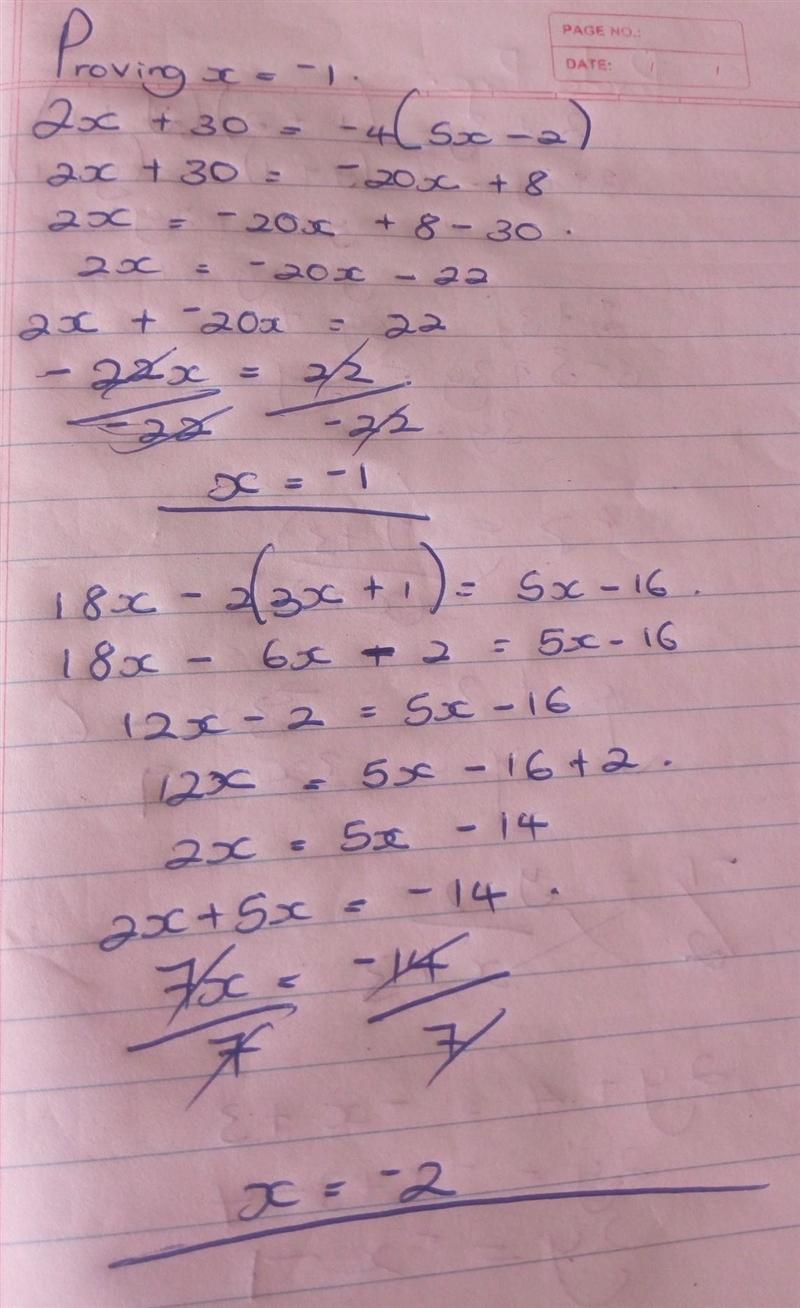 PAGE NO.:
DATE:
Proving x = -1.
2x + 30 = -4(5x - 2)
2x + 30 = -20x + 8
2x = -20x + 8 - 30.
2x = -20x - 22
2x + -20x = 22
-22x = 22
-22 -22
x = -1
18x - 2(3x + 1) = 5x - 16.
18x - 6x - 2 = 5x - 16
12x - 2 = 5x - 16
12x = 5x - 16 + 2.
2x = 5x - 14
2x + 5x = -14.
7x = -14
7 7
x = -2